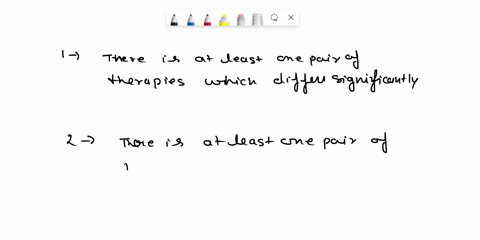 1→ There is at least one pair of
therapies which differ significantly
2→ There is at least one pair of